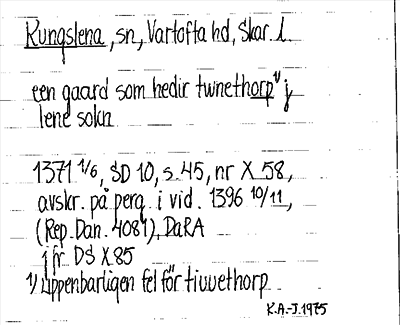 Kungslena, sn, Vartofta hd, Skar. l.
een gaard som hedir twnethorp 1) j
lene sokn
1371 1/6, SD 10, s. 45, nr X 58,
avskr. på perg. i vid. 1396 10/11,
(Rep. Dan. 4081), DaRA
jfr DS X 85
1) Uppenbarligen fel för tiuvethorp
K.A.-J. 1975